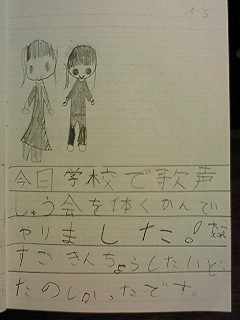 今日学校で歌声
しゅう会を体くかんで
やりました!
すごきんちょうしたいど
たのしかったです。